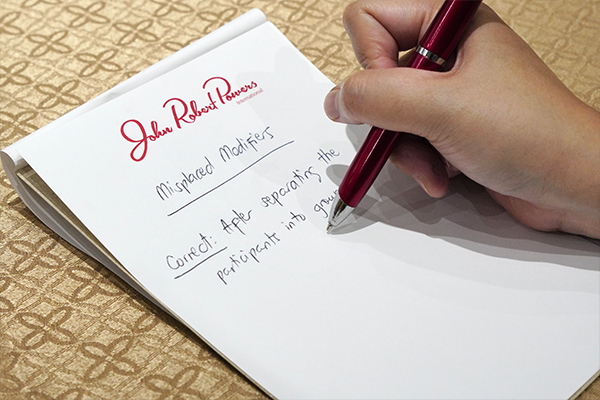 John Robert Powers
International
Misplaced Modifiers
Correct: After separating the
participants into grou